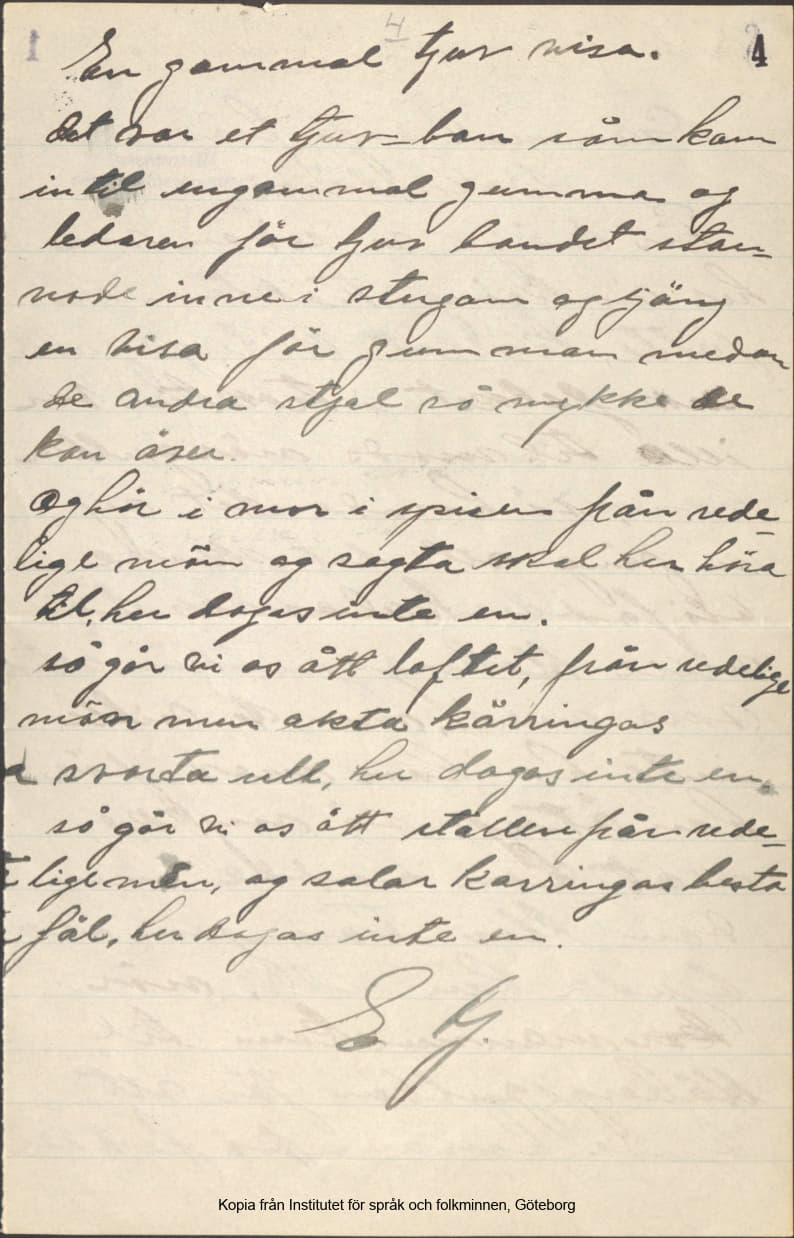 1 4 4
En gammal tjuv visa.
det var et tjuv-ban såm kom
in til engammal gumma og
ledaren för tjuv bandet stan-
nade inne i stugan og sjöng
en visa för gumman medan
de andra stjal så mykke de
kan åser.
og hör i mor i spisen från rede-
lige män og sagta skal hen höra
til, her dogas inte en.
så går vi os ått loftet, från redelige
män men akta kärringas
svarta ull, her dogas inte en.
så går vi os ått stallen från rede-
lige män, og salar karringas besta
fål, her dogas inte en.
E G.
Kopia från Institutet för språk och folkminnen, Göteborg